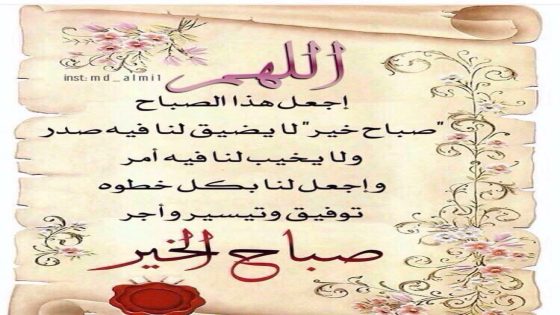 اللهم
inst: m d _ a l m i 1
إجعل هذا الصباح
"صباح خير" لا يضيق لنا فيه صدر
ولا يخيب لنا فيه أمر
وإجعل لنا بكل خطوه
توفيق وتيسير وأجر
صباح الخير